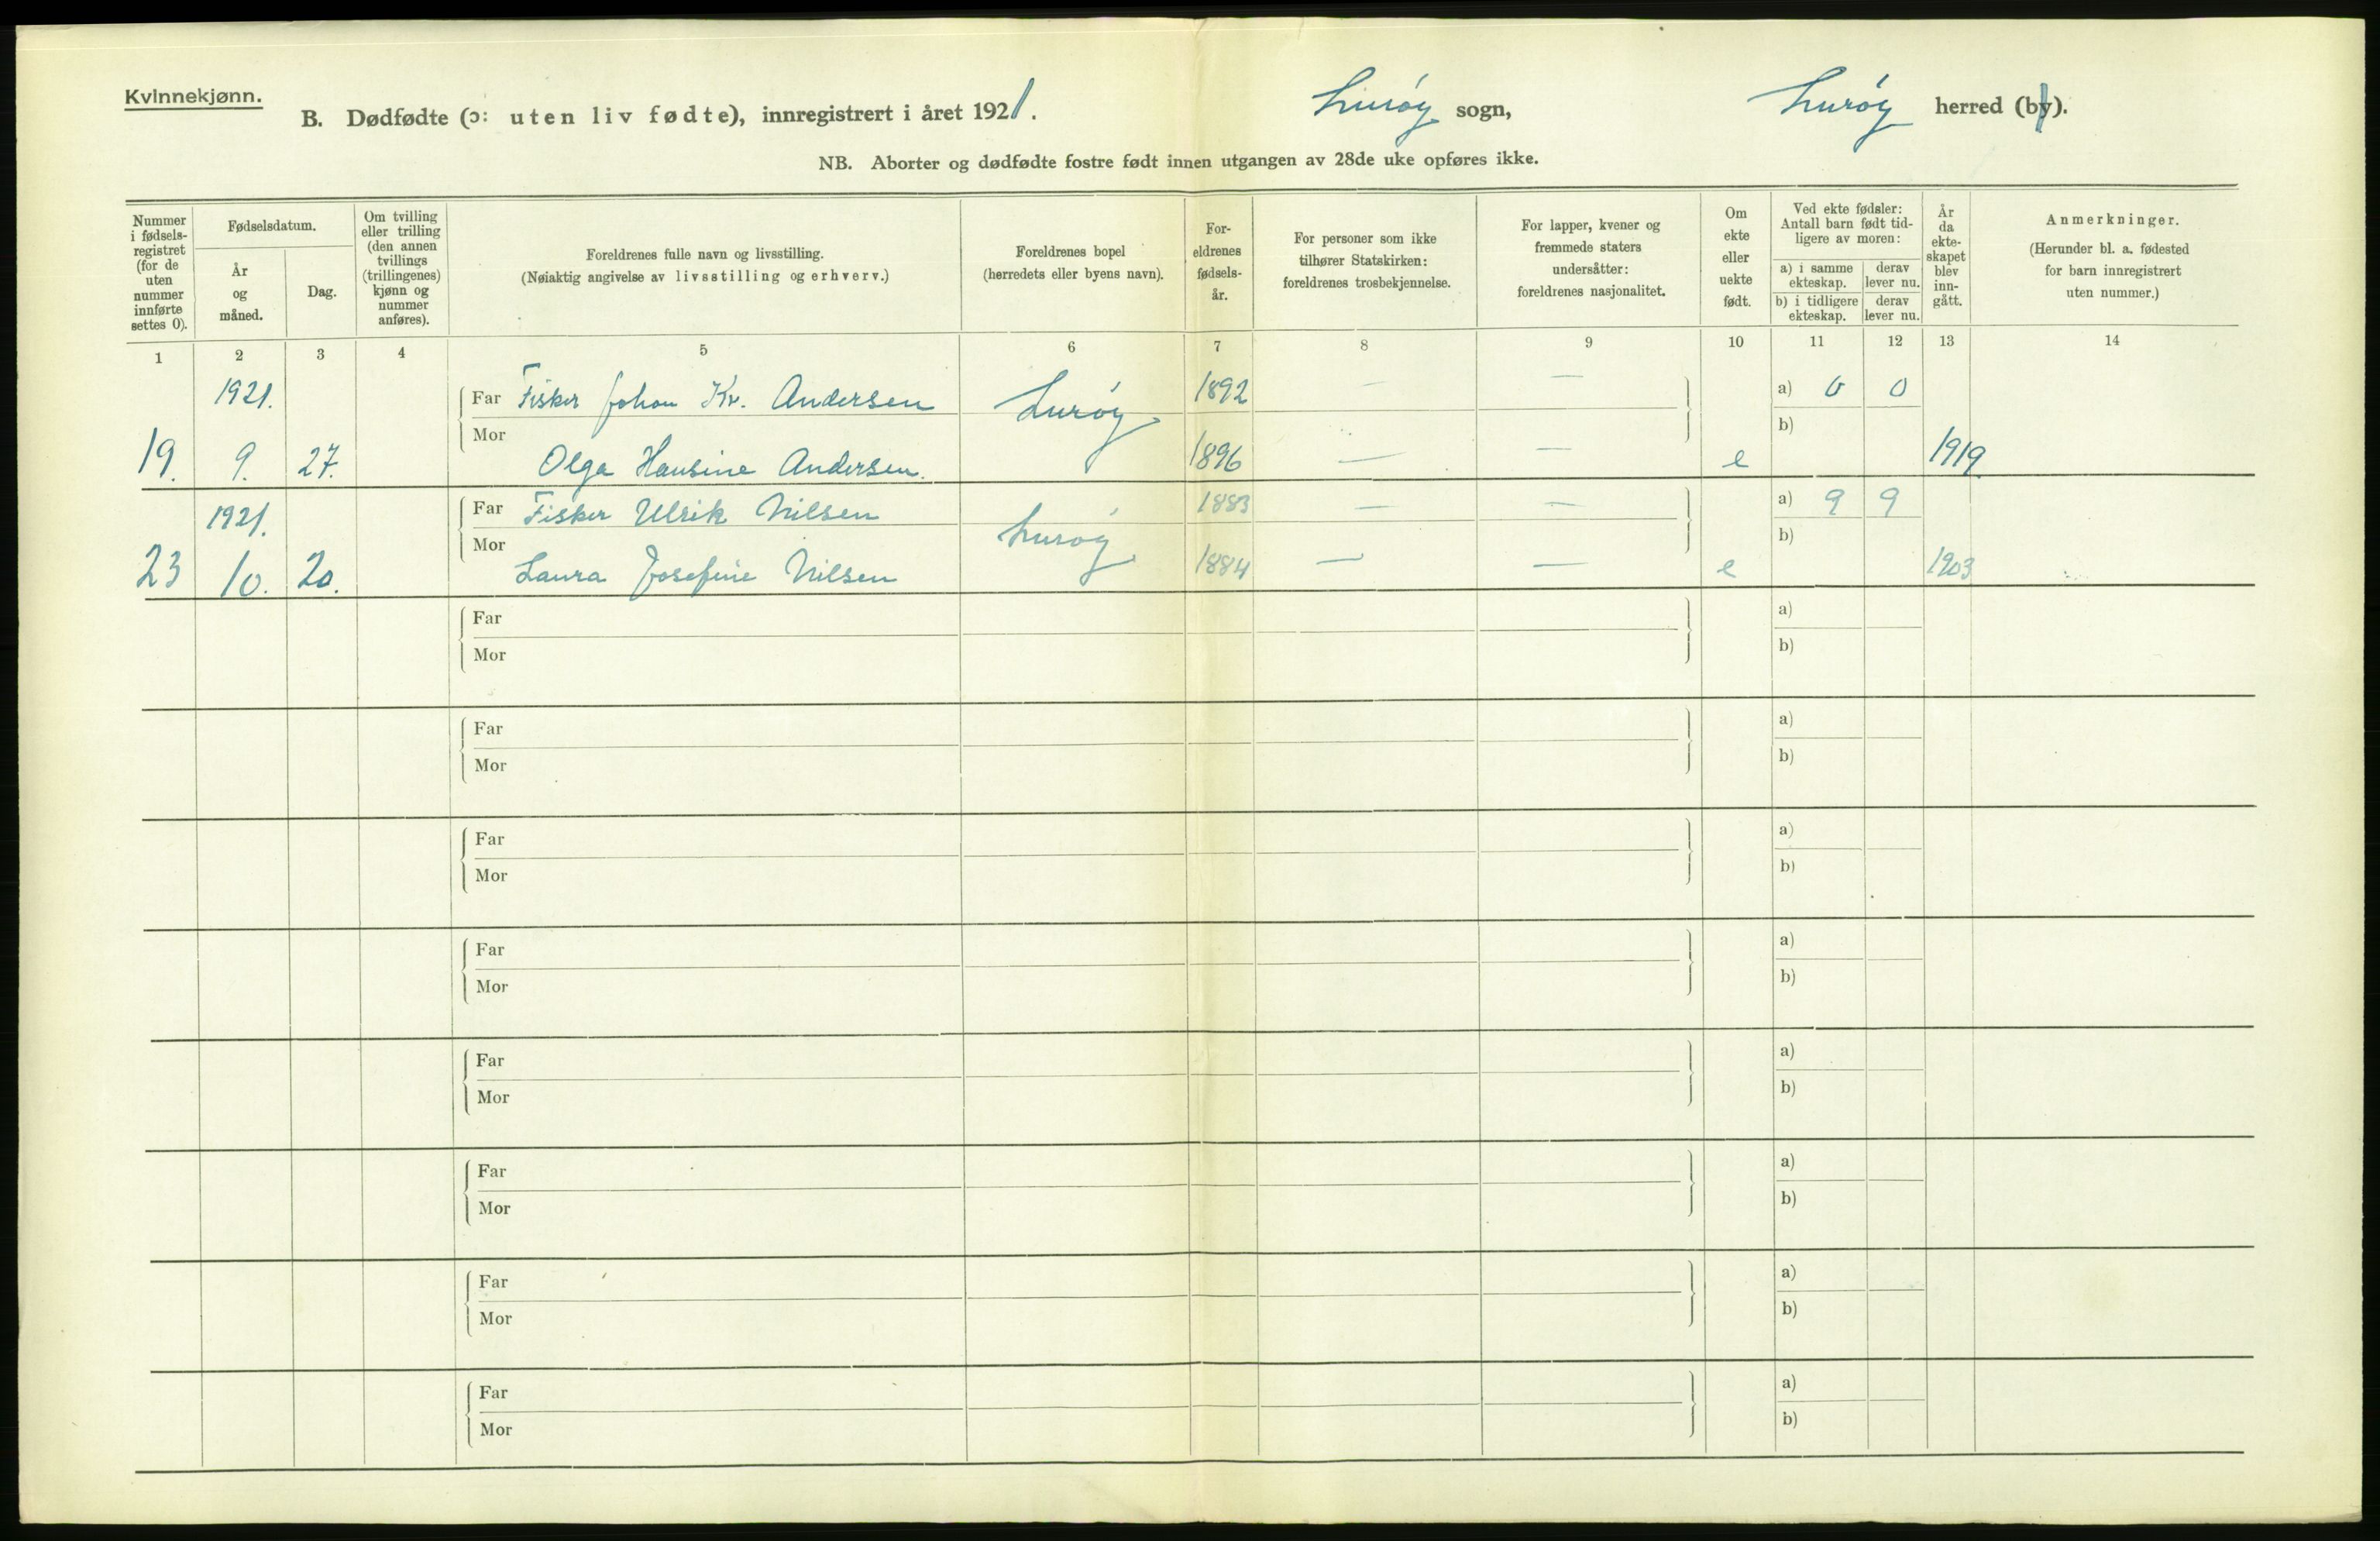 Kvinnekjønn.
B. Dødfødte (ɔ: uten liv fødte), innregistrert i året 1921. Lurøy sogn, Lurøy herred (by).
NB. Aborter og dødfødte fostre født innen utgangen av 28de uke opføres ikke.
Nummer
i fødsels-
registret
(for de
uten
nummer
innførte
settes 0).
Fødselsdatum.
År
og
måned.
Dag.
Om tvilling
eller trilling
(den annen
tvillings
(trillingenes)
kjønn og
nummer
anføres).
Foreldrenes fulle navn og livsstilling.
(Nøiaktig angivelse av livsstilling og erhverv.)
Foreldrenes bopel
(herredets eller byens navn).
For-
eldrenes
fødsels-
år.
For personer som ikke
tilhører Statskirken:
foreldrenes trosbekjennelse.
For lapper, kvener og
fremmede staters
undersåtter:
foreldrenes nasjonalitet.
Om
ekte
eller
uekte
født.
Ved ekte fødsler:
Antall barn født tid-
ligere av moren:
a) i samme
ekteskap.
derav
lever nu.
b) i tidligere
ekteskap.
derav
lever nu.
År
da
ekte-
skapet
blev
inn-
gått.
Anmerkninger.
(Herunder bl. a. fødested
for barn innregistrert
uten nummer.)
1 2 3 4 5 6 7 8 9 10 11 12 13 14
1921. Far Fisker Johan Kr. Andersen Lurøy 1892 — — a) 0 0
Mor b)
19. 9. 27. Olga Hansine Andersen. 1896 — — e 1919
1921. Far Fisker Ulrik Nilsen Lurøy 1883 — — a) 9 9
Mor b)
23 10. 20. Laura Josefine Nilsen 1884 — — e 1903
Far a)
Mor b)
Far a)
Mor b)
Far a)
Mor b)
Far a)
Mor b)
Far a)
Mor b)
Far a)
Mor b)
Far a)
Mor b)
Far a)
Mor b)